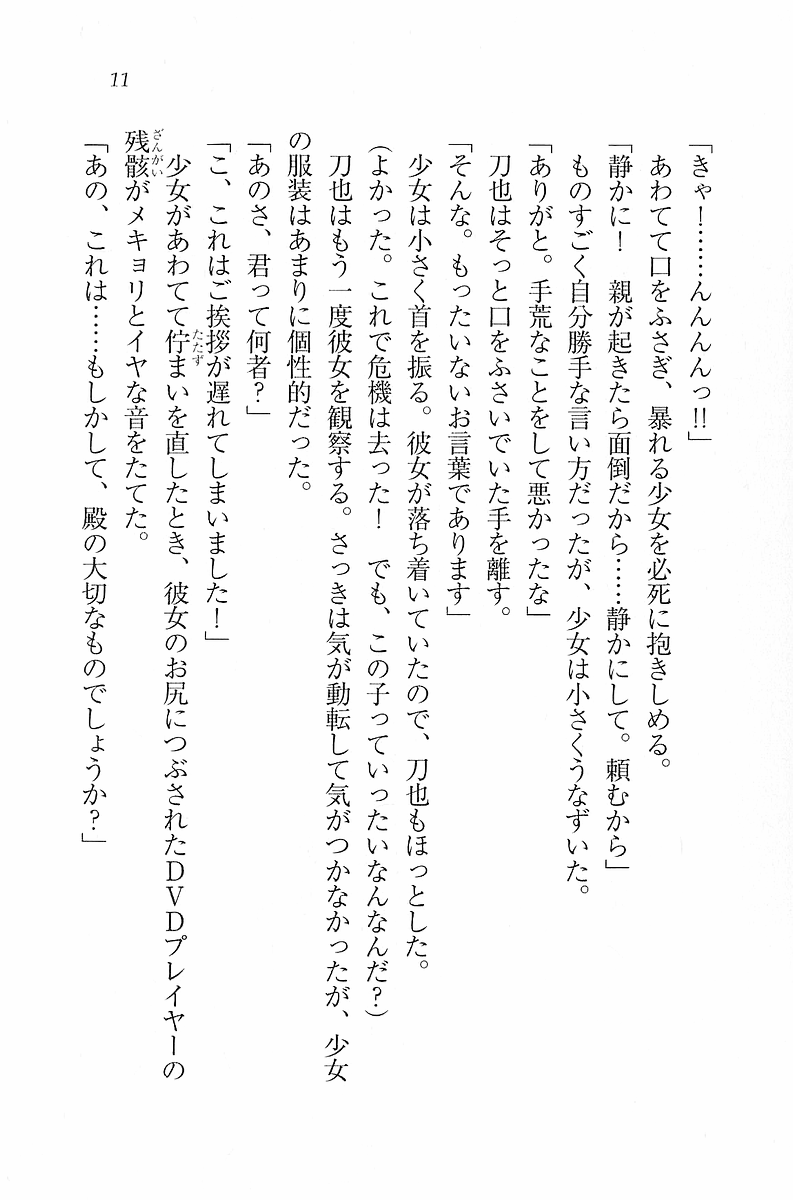 11
「きゃ！……んんんんっ!!」
あわてて口をふさぎ、暴れる少女を必死に抱きしめる。
「静かに！　親が起きたら面倒だから……静かにして。頼むから」
ものすごく自分勝手な言い方だったが、少女は小さくうなずいた。
「ありがと。手荒なことをして悪かったな」
刀也はそっと口をふさいでいた手を離す。
「そんな。もったいないお言葉であります」
少女は小さく首を振る。彼女が落ち着いていたので、刀也もほっとした。
（よかった。これで危機は去った！　でも、この子っていったいなんなんだ？）
刀也はもう一度彼女を観察する。さっきは気が動転して気がつかなかったが、少女
の服装はあまりに個性的だった。
「あのさ、君って何者？」
「こ、これはご挨拶が遅れてしまいました！」
少女があわてて佇まいを直したとき、彼女のお尻につぶされたＤＶＤプレイヤーの
残骸がメキョリとイヤな音をたてた。
「あの、これは……もしかして、殿の大切なものでしょうか？」
たたず
ざんがい